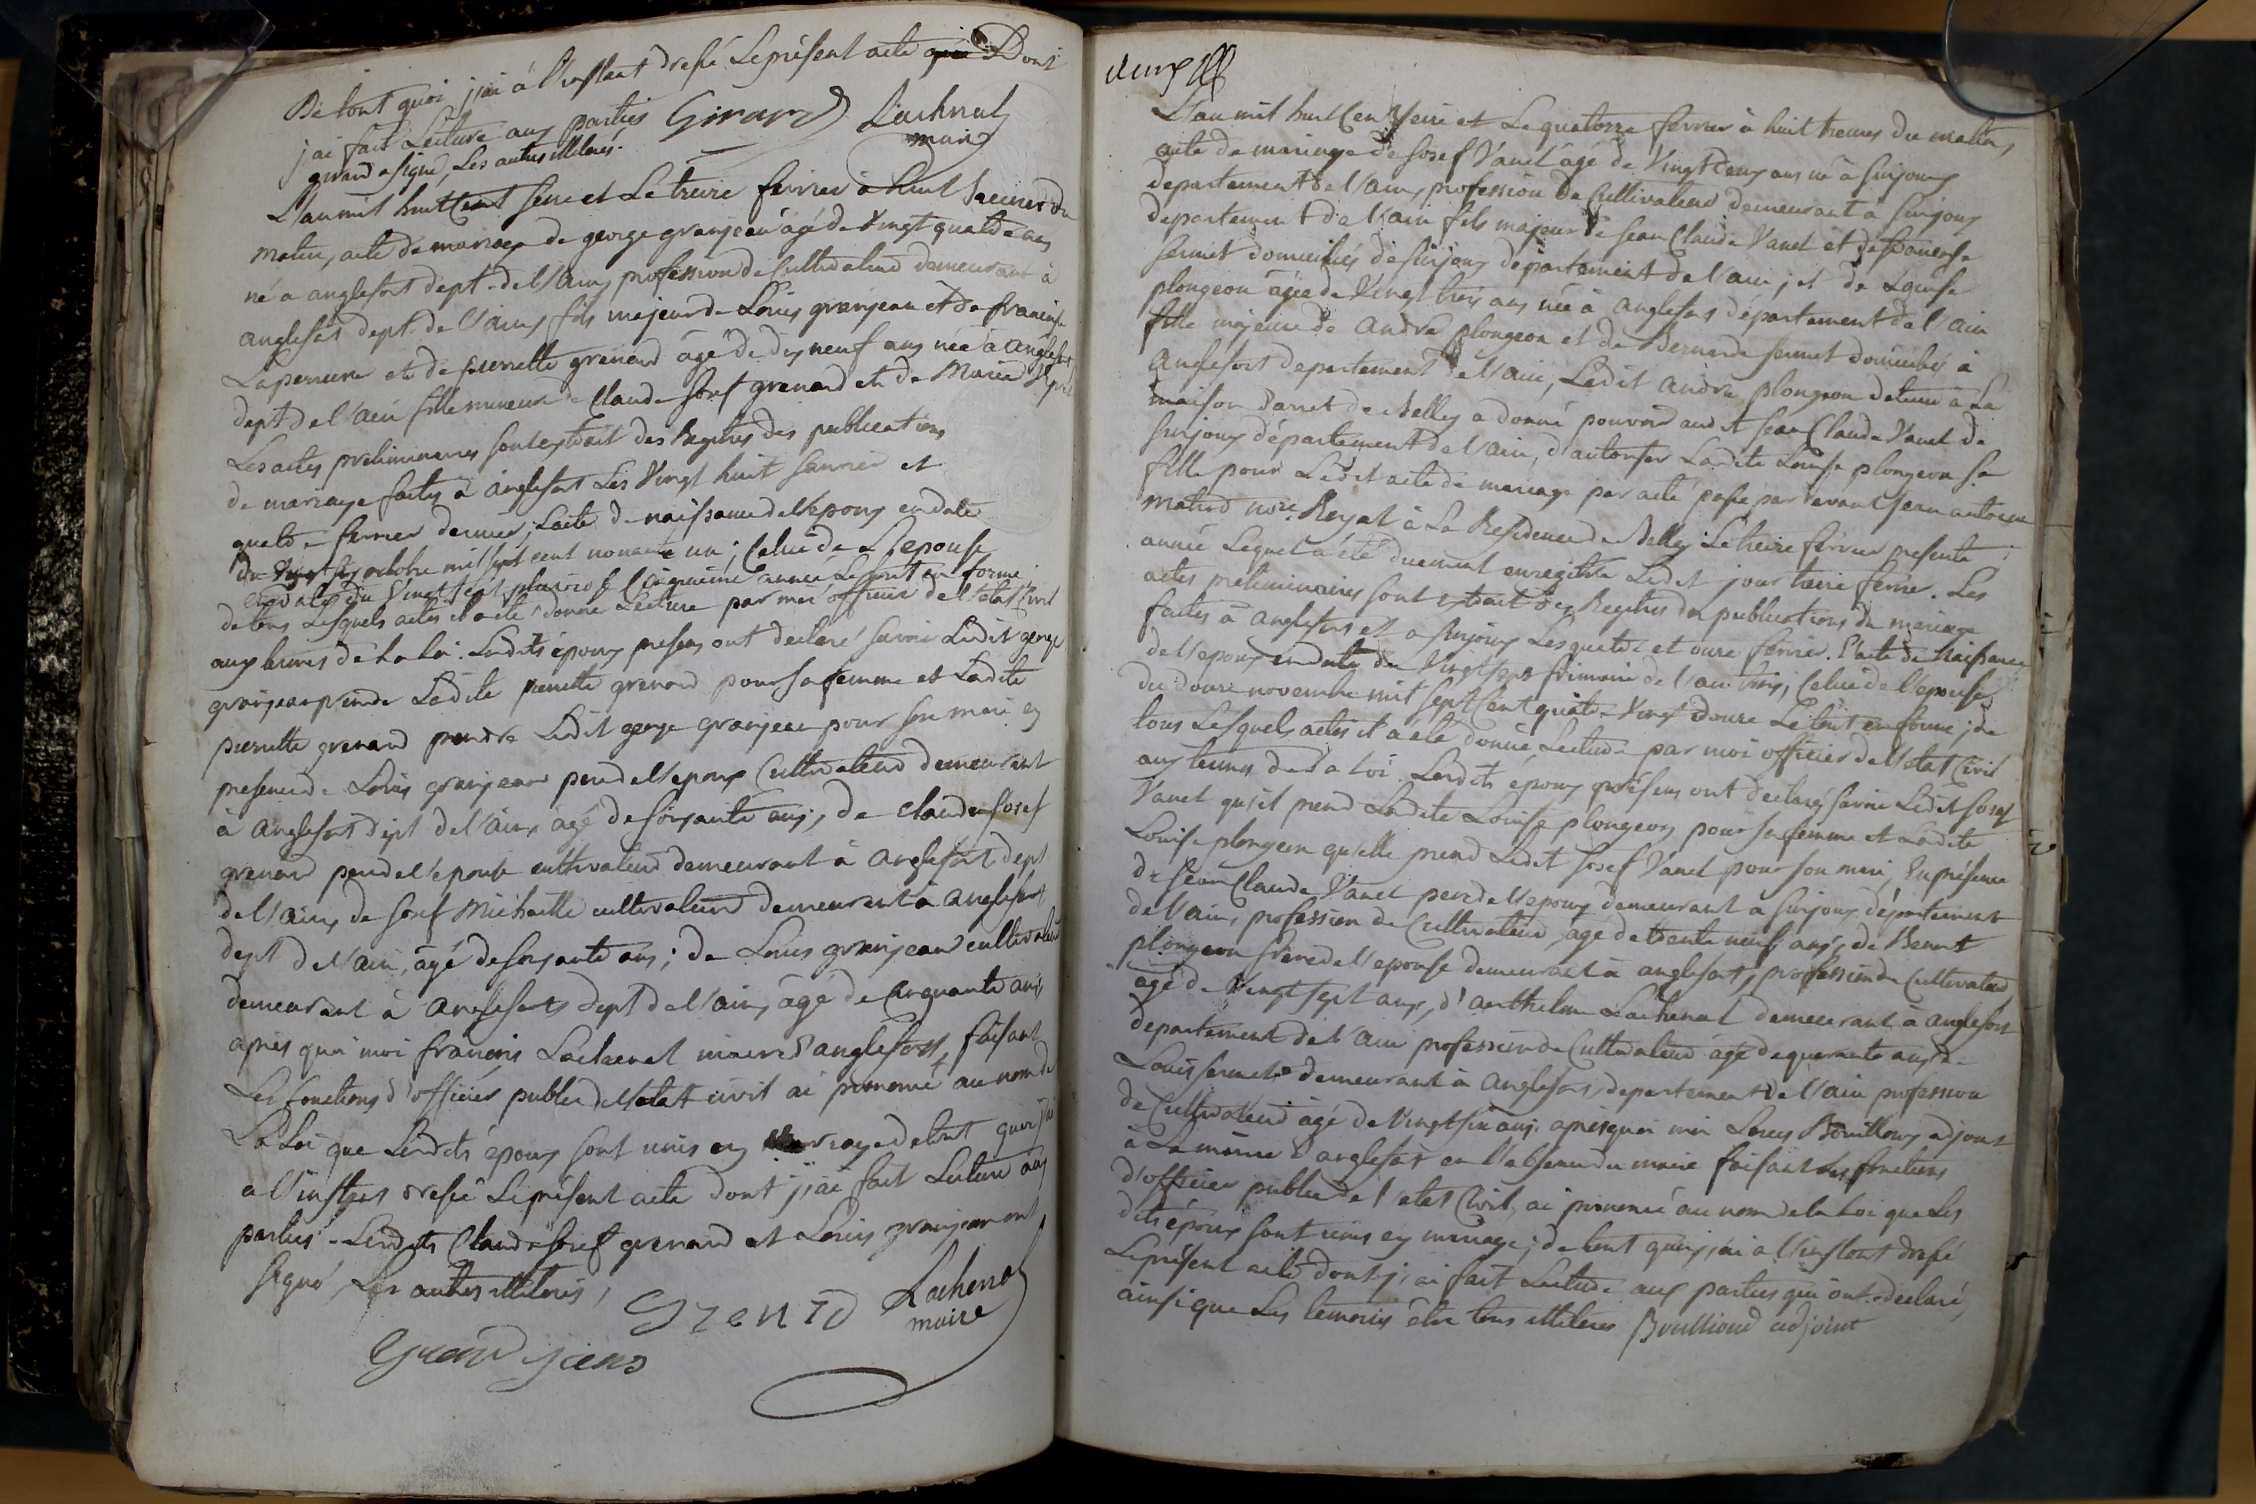 De tout quoi j'ai à l'instant dressé Le présent acte Dont
j'ai fait Lecture aux parties Girard Lachenal
maire
girard a signé, Les autres illiterés.
L'an mil huit Cent seize et Le treize fevrier à huit heures du
matin, acte de mariage de george granjean âgé de Vingt quatre ans
né a anglefort dept. de l'ain profession de Cultivateur demeurant à
anglefort dept. de l'ain, fils majeur de Louis granjean et de francoise
Laperriere et de pierrette grenard âgé de dix neuf ans née à anglefort
dept. de l'ain fille mineure de Claude Josef grenard et de Marie
Les actes preliminaires sont extrait des Registres des publications
de mariage faites à anglefort Les Vingt huit Janvier et
quatre fevrier dernier; L'acte de naissance de l'epoux en date
du Vingt six octobre mil sept cent nonante un; Celui de L'epouse
en date du Vingt sept pluviose Cinquieme année Le tout en forme
de tous Lesquels actes il a été donné Lecture par moi officier de l'etat Civil
aux termes de la Loi. Lesdits époux présens ont déclaré savoir Ledit george
granjean prendre Ladite pierrette grenard pour sa femme et Ladite
pierrette grenard prendre Ledit george granjean pour son mari en
presence de Louis granjean pere de l'epoux Cultivateur demeurant
à anglefort dept de l'ain, âgé de soixante ans, de Claude Josef
grenard pere de l'epouse cultivateur demeurant à anglefort dept
de l'ain, de Josef Michaille cultivateur demeurant à anglefort
dept de l'ain, âgé de soixante ans; de Louis granjean cultivateur
demeurant à anglefort dept de l'ain, âgé de Cinquante ans
après quoi moi francois Lachenal maire d'anglefort, faisant
Les fonctions d'officier public de l'etat civil ai prononcé au nom de
La Loi que Lesdits époux sont unis en mariage de tout quoi j'ai
a l'instant dressé Le présent acte dont j'ai fait Lecture aux
parties. Lesdits Claude Josef grenard et Louis granjean ont
signé, Les autres illiterés,
Grenard Lachenal
maire
Grandjean
L'an mil huit Cent seize et Le quatorze fevrier à huit heures du matin,
acte de mariage de Josef Vanel âgé de Vingt deux ans né à Surjoux
departement de l'ain, profession de Cultivateur demeurant à Surjoux
departement de l'ain fils majeur de Jean Claude Vanel et de francoise
Sermet domiciliés de Surjoux département de l'ain; et de Louise
plongeon âgée de Vingt trois ans née à anglefort département de l'ain
fille majeure de andré plongeon et de Bernarde Sermet domiciliés à
anglefort departement de l'ain, Ledit andré plongeon detenu à La
maison d'arret de Belley a donné pouvoir audit Jean Claude Vanel de
Surjoux département de l'ain, d'autoriser Ladite Louise plongeon sa
fille pour Ledit acte de mariage par acte passé par devant Jean antoine
notre. Royal à La Residence de Belley Le treize fevrier presente
année Lequel a été duement enregistré Ledit jour treize fevrier. Les
actes preliminaires sont extrait des Registres des publications de mariage
faites à anglefort et a Surjoux Les quatre et onze fevrier. L'acte de Naissance
de l'epoux en date du Vingt sept frimaire de l'an trois; Celui de l'epouse
du douze novembre mil sept Cent quatre Vingt douze Le tout en forme; de
tous Lesquels actes il a été donné Lecture par moi officier de l'etat Civil
aux termes de La Loi. Lesdits époux présens ont déclaré savoir Ledit Josef
Vanel qu'il prend Ladite Louise plongeon pour sa femme et Ladite
Louise plongeon qu'elle prend Ledit Josef Vanel pour son mari, En présence
de Jean Claude Vanel pere de l'epoux demeurant a Surjoux département
de l'ain, profession de Cultivateur, âgé de trente neuf ans, de Benoit
plongeon frere de l'epouse demeurant à anglefort, profession de Cultivateur
âgé de Vingt sept ans, d'anthelme Lachenal demeurant à anglefort
departement de l'ain profession de Cultivateur âgé de quarante ans, de
Louis Sermet demeurant à anglefort, departement de l'ain profession
de Cultivateur âgé de Vingt six ans. après quoi moi Louis Bouilloux adjoint
à La mairie d'anglefort en l'absence du maire faisant Les fonctions
d'officier public de l'etat Civil, ai prononcé au nom de la Loi que Les
dits époux sont unis en mariage; de tout quoi j'ai a l'instant dressé
Le présent acte dont j'ai fait Lecture aux parties qui ont déclaré,
ainsi que Les temoins être tous illiteres Boullioud adjoint